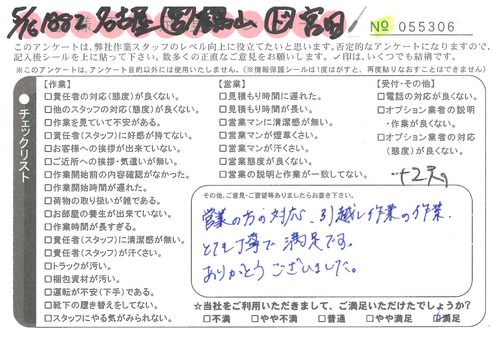 5/16 1882 名古屋 営 富山 ド 宮田
№ 055306
このアンケートは、弊社作業スタッフのレベル向上に役立てたいと思います。否定的なアンケートになりますので、
記入後シールを上に貼って下さい。数多くの正直なご意見をお願いします。✓印は、いくつでも結構です。
※このアンケートは、アンケート目的以外には使用いたしません。(※情報保護シールは1度はがすと、再度貼りなおすことはできません)
チェックリスト
【作業】
□責任者の対応(態度)が良くない。
□他のスタッフの対応(態度)が良くない。
□作業を見ていて不安がある。
□責任者(スタッフ)に好感が持てない。
□お客様への挨拶が出来ていない。
□ご近所への挨拶・気遣いが無い。
□作業開始前の内容確認がなかった。
□作業開始時間が遅れた。
□荷物の取り扱いが雑である。
□お部屋の養生が出来ていない。
□作業時間が長すぎる。
□責任者(スタッフ)に清潔感が無い。
□責任者(スタッフ)が汗くさい。
□トラックが汚い。
□梱包資材が汚い。
□運転が不安(下手)である。
□靴下の履き替えをしてない。
□スタッフにやる気がみられない。
【営業】
□見積もり時間に遅れた。
□見積もり時間が長い。
□営業マンに清潔感が無い。
□営業マンが煙草くさい。
□営業マンが汗くさい。
□営業態度が良くない。
□営業の説明と作業が一致してない。
【受付・その他】
□電話の対応が良くない。
□オプション業者の説明
・作業が良くない。
□オプション業者の対応
(態度)が良くない。
+2点
その他、ご意見・ご要望等ありましたらお書き下さい。
営業の方の対応、引越し作業の作業、
とても丁寧で満足です。
ありがとうございました。
☆当社をご利用いただきまして、ご満足いただけたでしょうか?
□不満 □やや不満 □普通 □やや満足 ☑満足